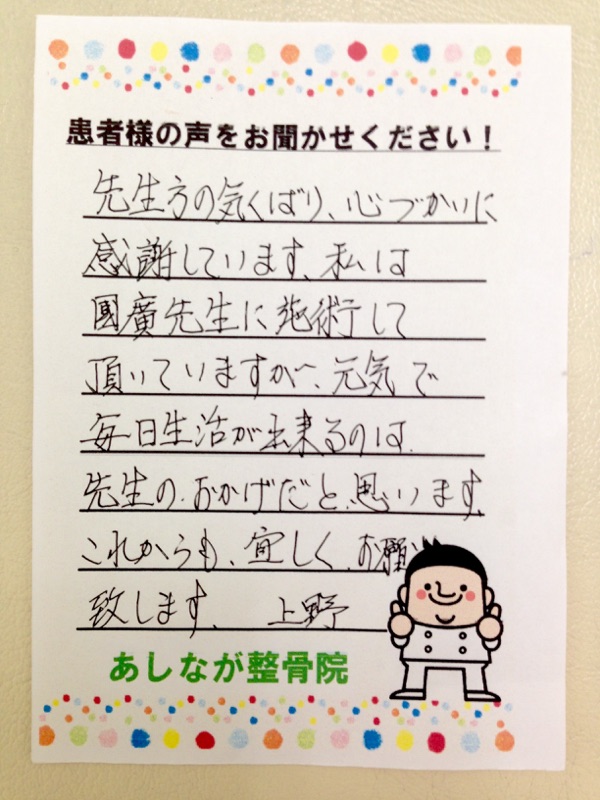 患者様の声をお聞かせください！
先生方の気くばり、心づかいに
感謝しています、私は
國廣先生に施術して
頂いていますが、元気で
毎日生活が出来るのは
先生の、おかげだと思います、
これからも、宜しく、お願
致します、 上野
あしなが整骨院